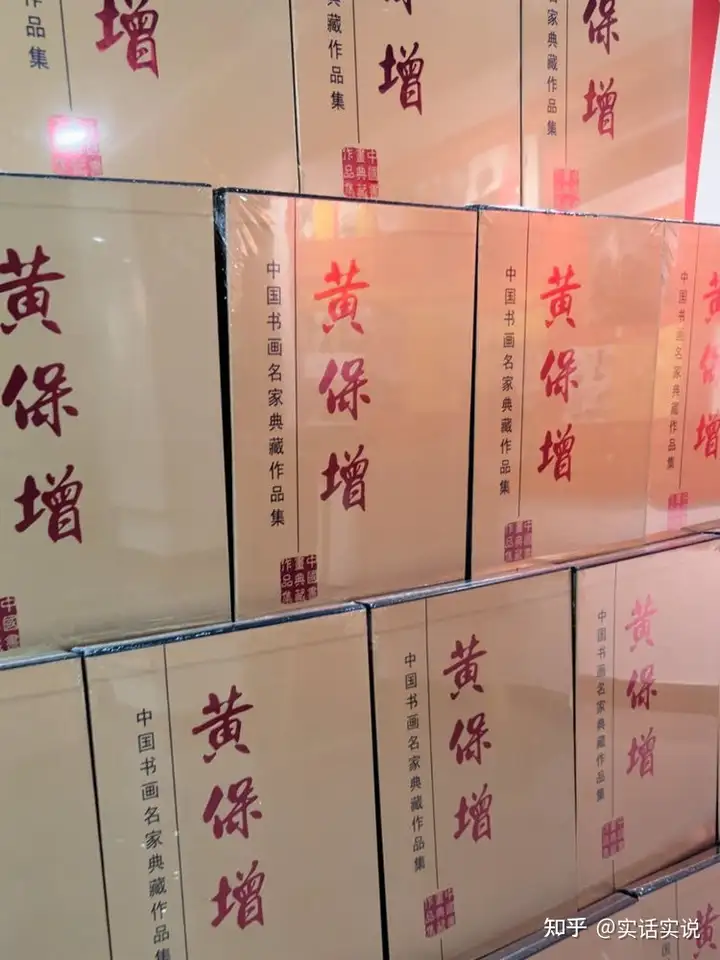 品集
增
藏作品集
增
中國書
畫典藏
作品集
家典藏作品集
保增
黄保增
中國書
中国书画名家典藏作品集
黄保增
中國書
畫典藏
作品集
中国书画名家典藏作品集
黄保增
中國書
畫典藏
作品集
中国书画名家典藏作品集
黄保增
中国书画名家典藏作品集
黄保增
中国书画名家典藏作品集
黄保增
中國書
畫典藏
作品集
中国书画名家典藏作品集
黄保增
黄
知乎 @实话实说